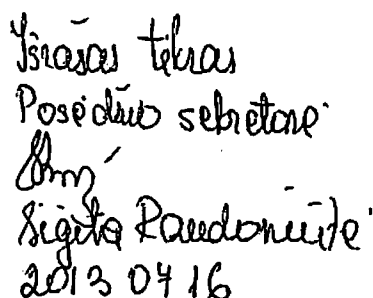 Išrašas tikras
Posėdžio sekretorė
Sigita Raudoniūtė
2013 04 16